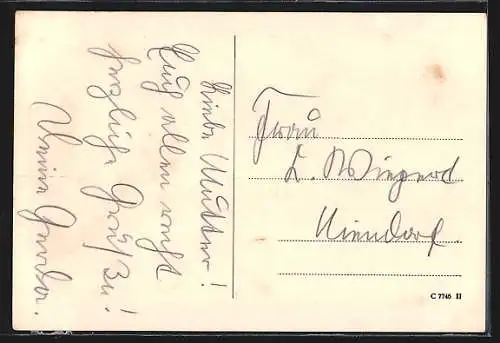 Liebe Mutter!
Euch allen recht
herzliche Grüße!
Deine Gerda.
Frau
L. Wiegerd
Niendorf.
C 7745 II